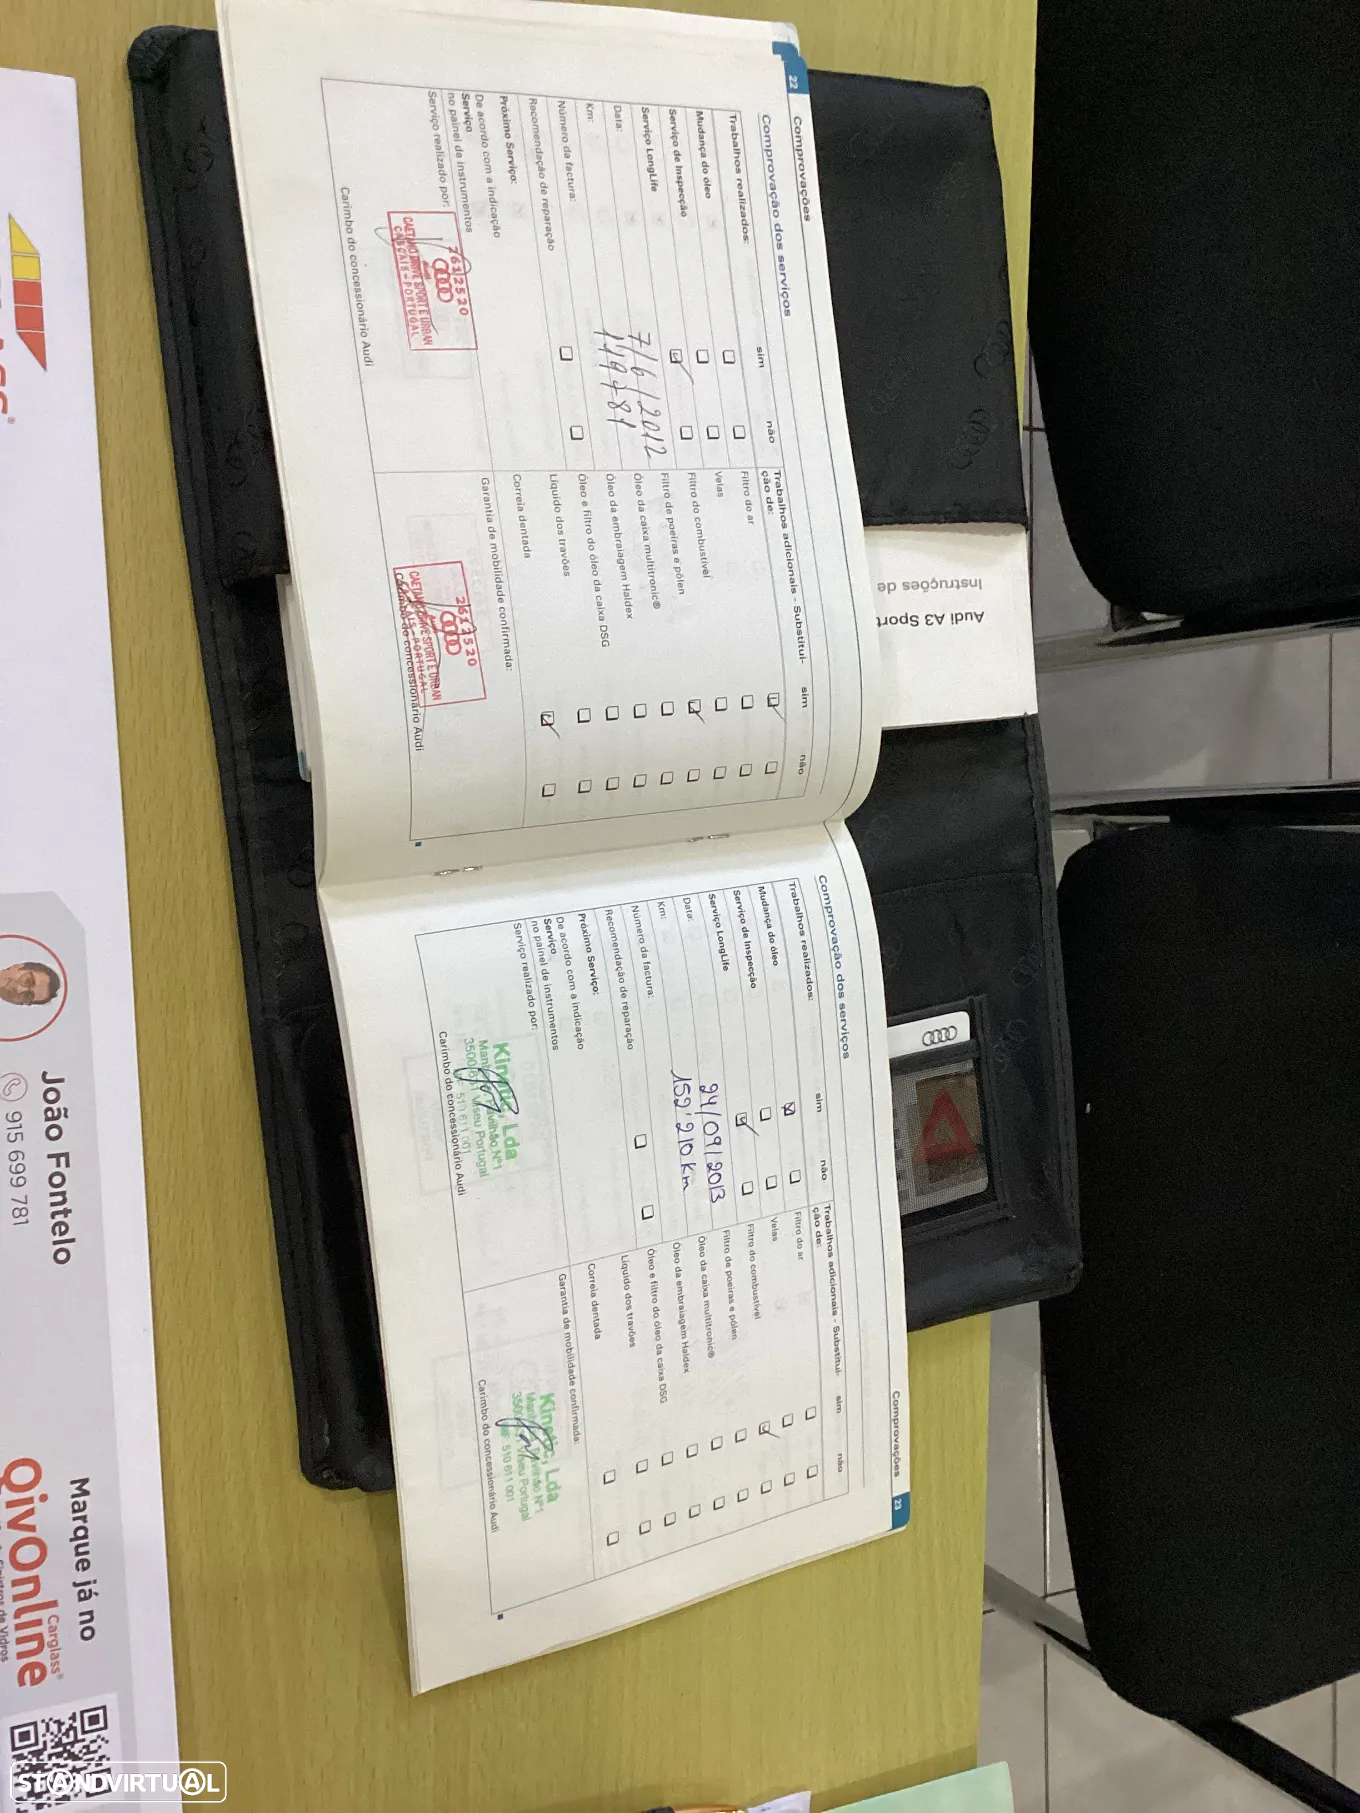 22
Comprovações
Comprovação dos serviços
Trabalhos realizados:
sim
não
Mudança do óleo
Serviço de Inspecção
Serviço LongLife
Data:
7/6/2012
Km:
149781
Número da factura:
Recomendação de reparação
Próximo Serviço:
De acordo com a indicação
Serviço
no painel de instrumentos
Serviço realizado por:
2612520
CAETANO DRIVE SPORT E URBAN
CASCAIS-PORTUGAL
Carimbo do concessionário Audi
Trabalhos adicionais - Substitui-
ção de:
sim
não
Filtro do ar
Velas
Filtro do combustível
Filtro de poeiras e pólen
Óleo da caixa multitronic®
Óleo da embraiagem Haldex
Óleo e filtro do óleo da caixa DSG
Líquido dos travões
Correia dentada
Garantia de mobilidade confirmada:
2612520
CAETANO DRIVE SPORT E URBAN
CASCAIS-PORTUGAL
Carimbo do concessionário Audi
Comprovações
23
Comprovação dos serviços
Trabalhos realizados:
sim
não
Mudança do óleo
Serviço de Inspecção
Serviço LongLife
Data:
24/09/2013
Km:
152'210 km
Número da factura:
Recomendação de reparação
Próximo Serviço:
De acordo com a indicação
Serviço
no painel de instrumentos
Serviço realizado por:
Lda
Pavilhão Nº1
Viseu Portugal
510 611 001
Carimbo do concessionário Audi
Trabalhos adicionais - Substitui-
ção de:
sim
não
Filtro do ar
Velas
Filtro do combustível
Filtro de poeiras e pólen
Óleo da caixa multitronic®
Óleo da embraiagem Haldex
Óleo e filtro do óleo da caixa DSG
Líquido dos travões
Correia dentada
Garantia de mobilidade confirmada:
Lda
Pavilhão Nº1
Viseu Portugal
510 611 001
Carimbo do concessionário Audi
Audi A3 Sport
Instruções de
João Fontelo
915 699 781
Marque já no
QivOnline
Carglass®
STANDVIRTUAL